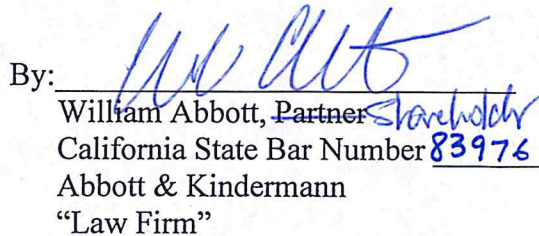 By:
William Abbott, Partner Shareholder
California State Bar Number 83976
Abbott & Kindermann
“Law Firm”